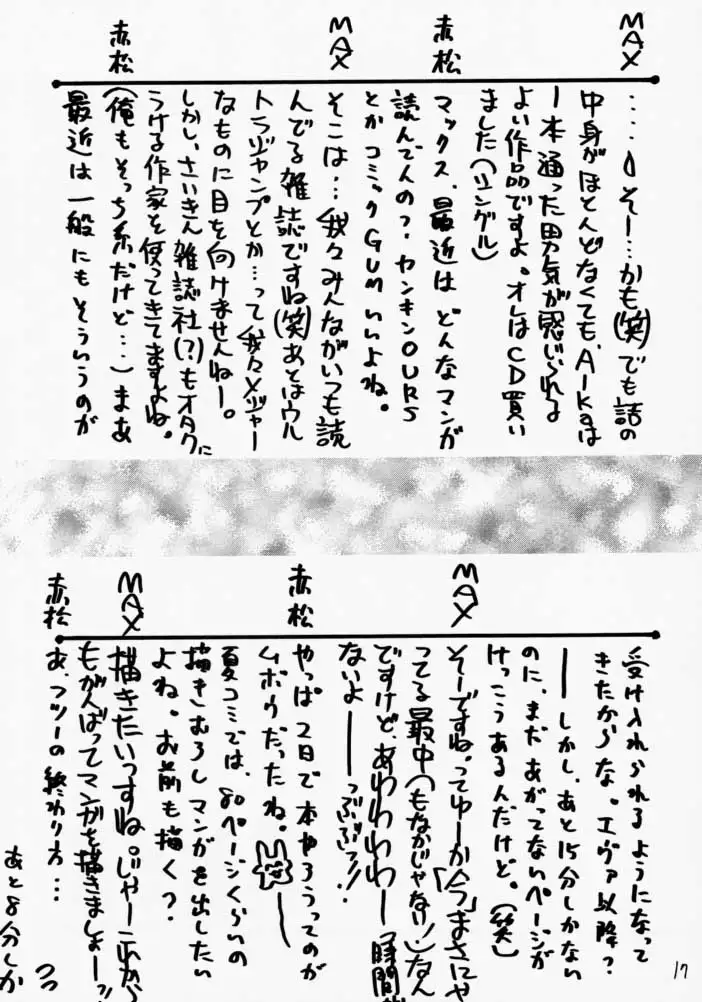 MAX
‥‥うそー…かも(笑)でも話の
中身がほとんどなくても、AIKaは
1本通った男気が感じられる
よい作品ですよ。オレはCD買い
ました(シングル)
赤松
マックス、最近はどんなマンガ
読んでんの?ヤンキンOURS
とかコミックGUMいいよね。
MAX
そこは…我々みんながいつも読
んでる雑誌ですね(笑)あとはウル
トラジャンプとか…って我々メジャー
なものに目を向けませんねー。
赤松
しかし、さいきん雑誌社(?)もオタクに
うける作家を使ってきてますよね。
(俺もそっち系だけど…)まあ
最近は一般にもそういうのが
受け入れられるようになって
きたからな。エヴァ以降?
――しかし、あと15分しかない
のに、まだあがってないページが
けっこうあるんだけど。(笑)
MAX
そーですね。ってゆーか「今」まさにや
ってる最中(もなかじゃない!)なん
ですけど、あわわわわー時間が
ないよ――っぶぶっ!!
赤松
やっぱ2日で本やろうってのが
ムボウだったね。――
夏コミでは、80ページくらいの
描きむろしマンガを出したい
よね。お前も描く?
MAX
描きたいっすね。じゃーこれから
もがんばってマンガを描きましょーっ!!
赤松
あ、フツーの終わり方…
あと8分しか
17